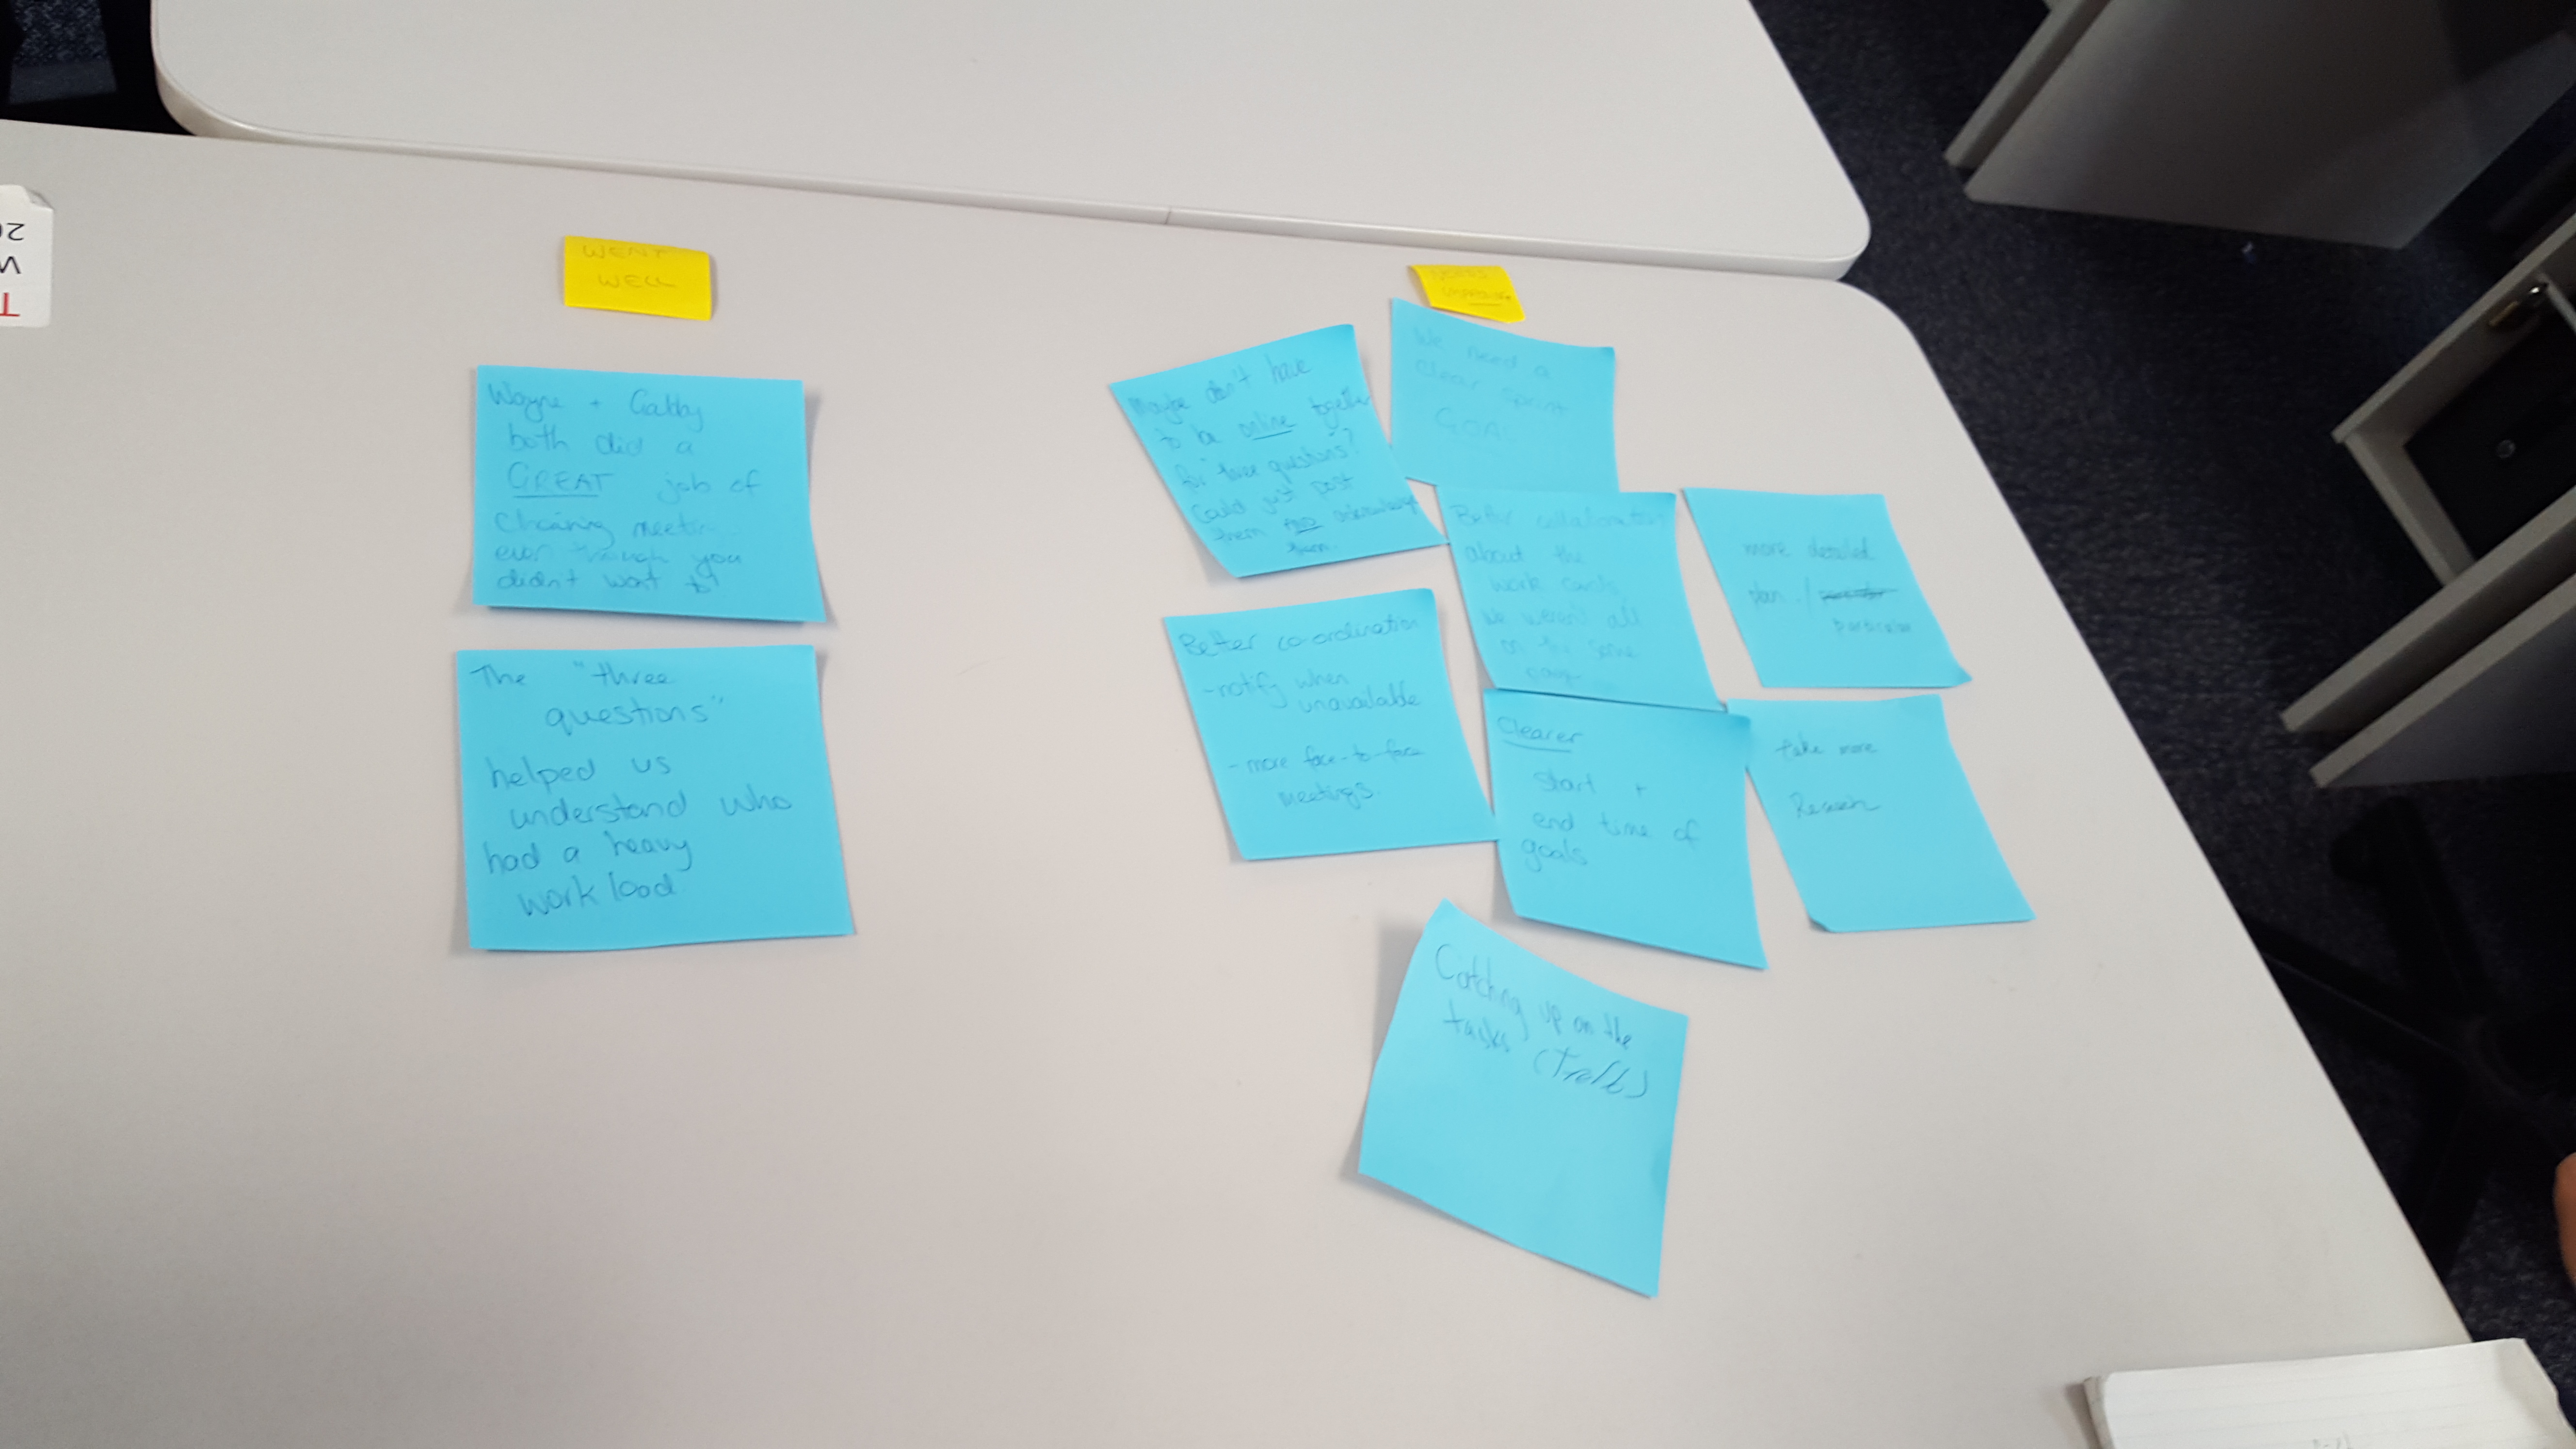 WENT
WELL
Wayne + Gabby
both did a
GREAT job of
Chairing
even though you
didn't want to!
The "three
questions"
helped us
understand who
had a heavy
work load
IMPROVE
Maybe don't have
to be online together
for "three questions"?
Could just post
them AND acknowledge
them.
We need a
clear sprint
GOAL
Better collaboration
about the
work cards
we weren't all
on the same
page
more detailed
plan /
particular
Better co-ordination
- notify when
unavailable
- more face-to-face
meetings.
Clearer
start +
end time of
goals
take more
Catching up on the
tasks (Trello)